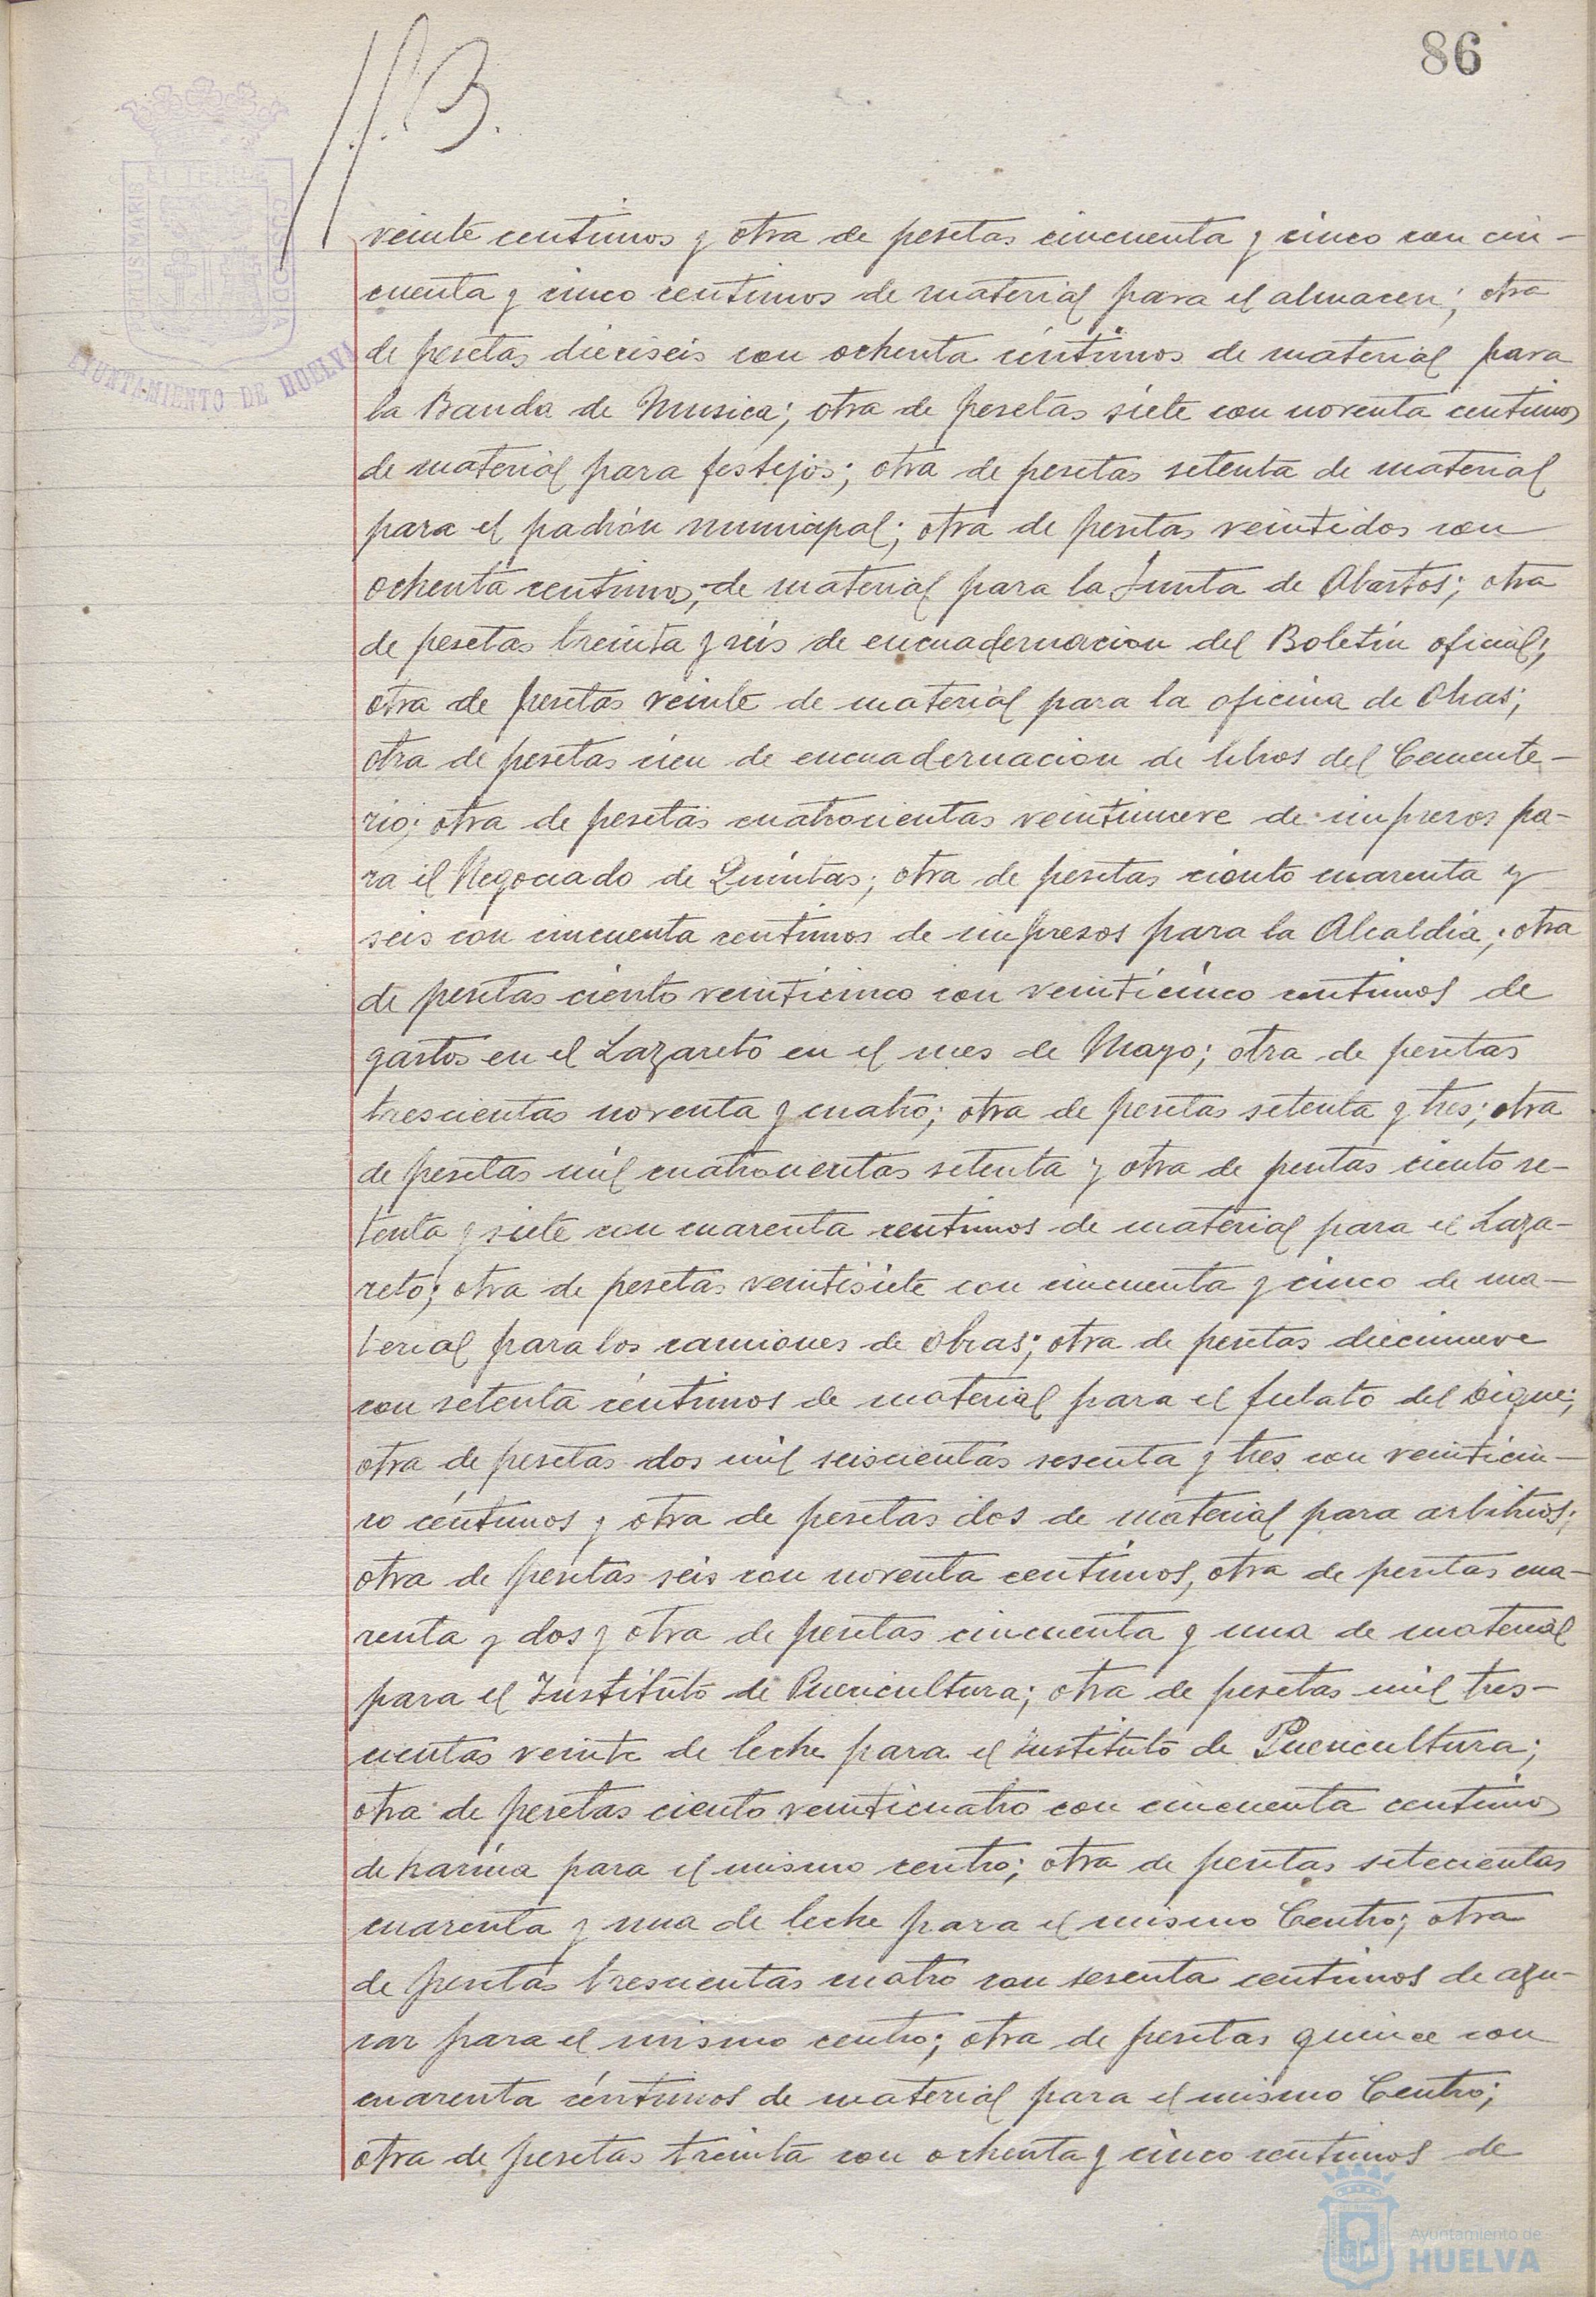 86
veinte centimos y otra de pesetas cincuenta y cinco con cin-
cuenta y cinco centimos de material para el almacen; otra
de pesetas dieciseis con ochenta céntimos de material para
la Banda de Musica; otra de pesetas siete con noventa centimos
de material para festejos; otra de pesetas setenta de material
para el padrón municipal; otra de pesetas veintidos con
ochenta centimos, de material para la Junta de Abastos; otra
de pesetas treinta y seis de encuadernacion del Boletin oficial;
otra de pesetas veinte de material para la oficina de Obras;
otra de pesetas cien de encuadernacion de libros del Cemente-
rio; otra de pesetas cuatrocientas veintinueve de impresos pa-
ra el Negociado de Quintas; otra de pesetas ciento cuarenta y
seis con cincuenta centimos de impresos para la Alcaldia; otra
de pesetas ciento veinticinco con veinticinco centimos de
gastos en el Lazareto en el mes de Mayo; otra de pesetas
trescientas noventa y cuatro; otra de pesetas setenta y tres; otra
de pesetas mil cuatrocientas setenta y otra de pesetas ciento se-
tenta y siete con cuarenta centimos de material para el Laza-
reto; otra de pesetas veintisiete con cincuenta y cinco de ma-
terial para los camiones de obras; otra de pesetas diecinueve
con setenta céntimos de material para el fielato del Dique;
otra de pesetas dos mil seiscientas sesenta y tres con veinticin-
co céntimos y otra de pesetas dos de material para arbitrios;
otra de pesetas seis con noventa centimos, otra de pesetas cua-
renta y dos y otra de pesetas cincuenta y una de material
para el Instituto de Puericultura; otra de pesetas mil tres-
cientas veinte de leche para el Instituto de Puericultura;
otra de pesetas ciento veinticuatro con cincuenta centimos
de harina para el mismo centro; otra de pesetas setecientas
cuarenta y una de leche para el mismo Centro; otra
de pesetas trescientas cuatro con sesenta centimos de azu-
car para el mismo centro; otra de pesetas quince con
cuarenta céntimos de material para el mismo Centro;
otra de pesetas treinta con ochenta y cinco centimos de
AYUNTAMIENTO DE HUELVA
Ayuntamiento de
HUELVA